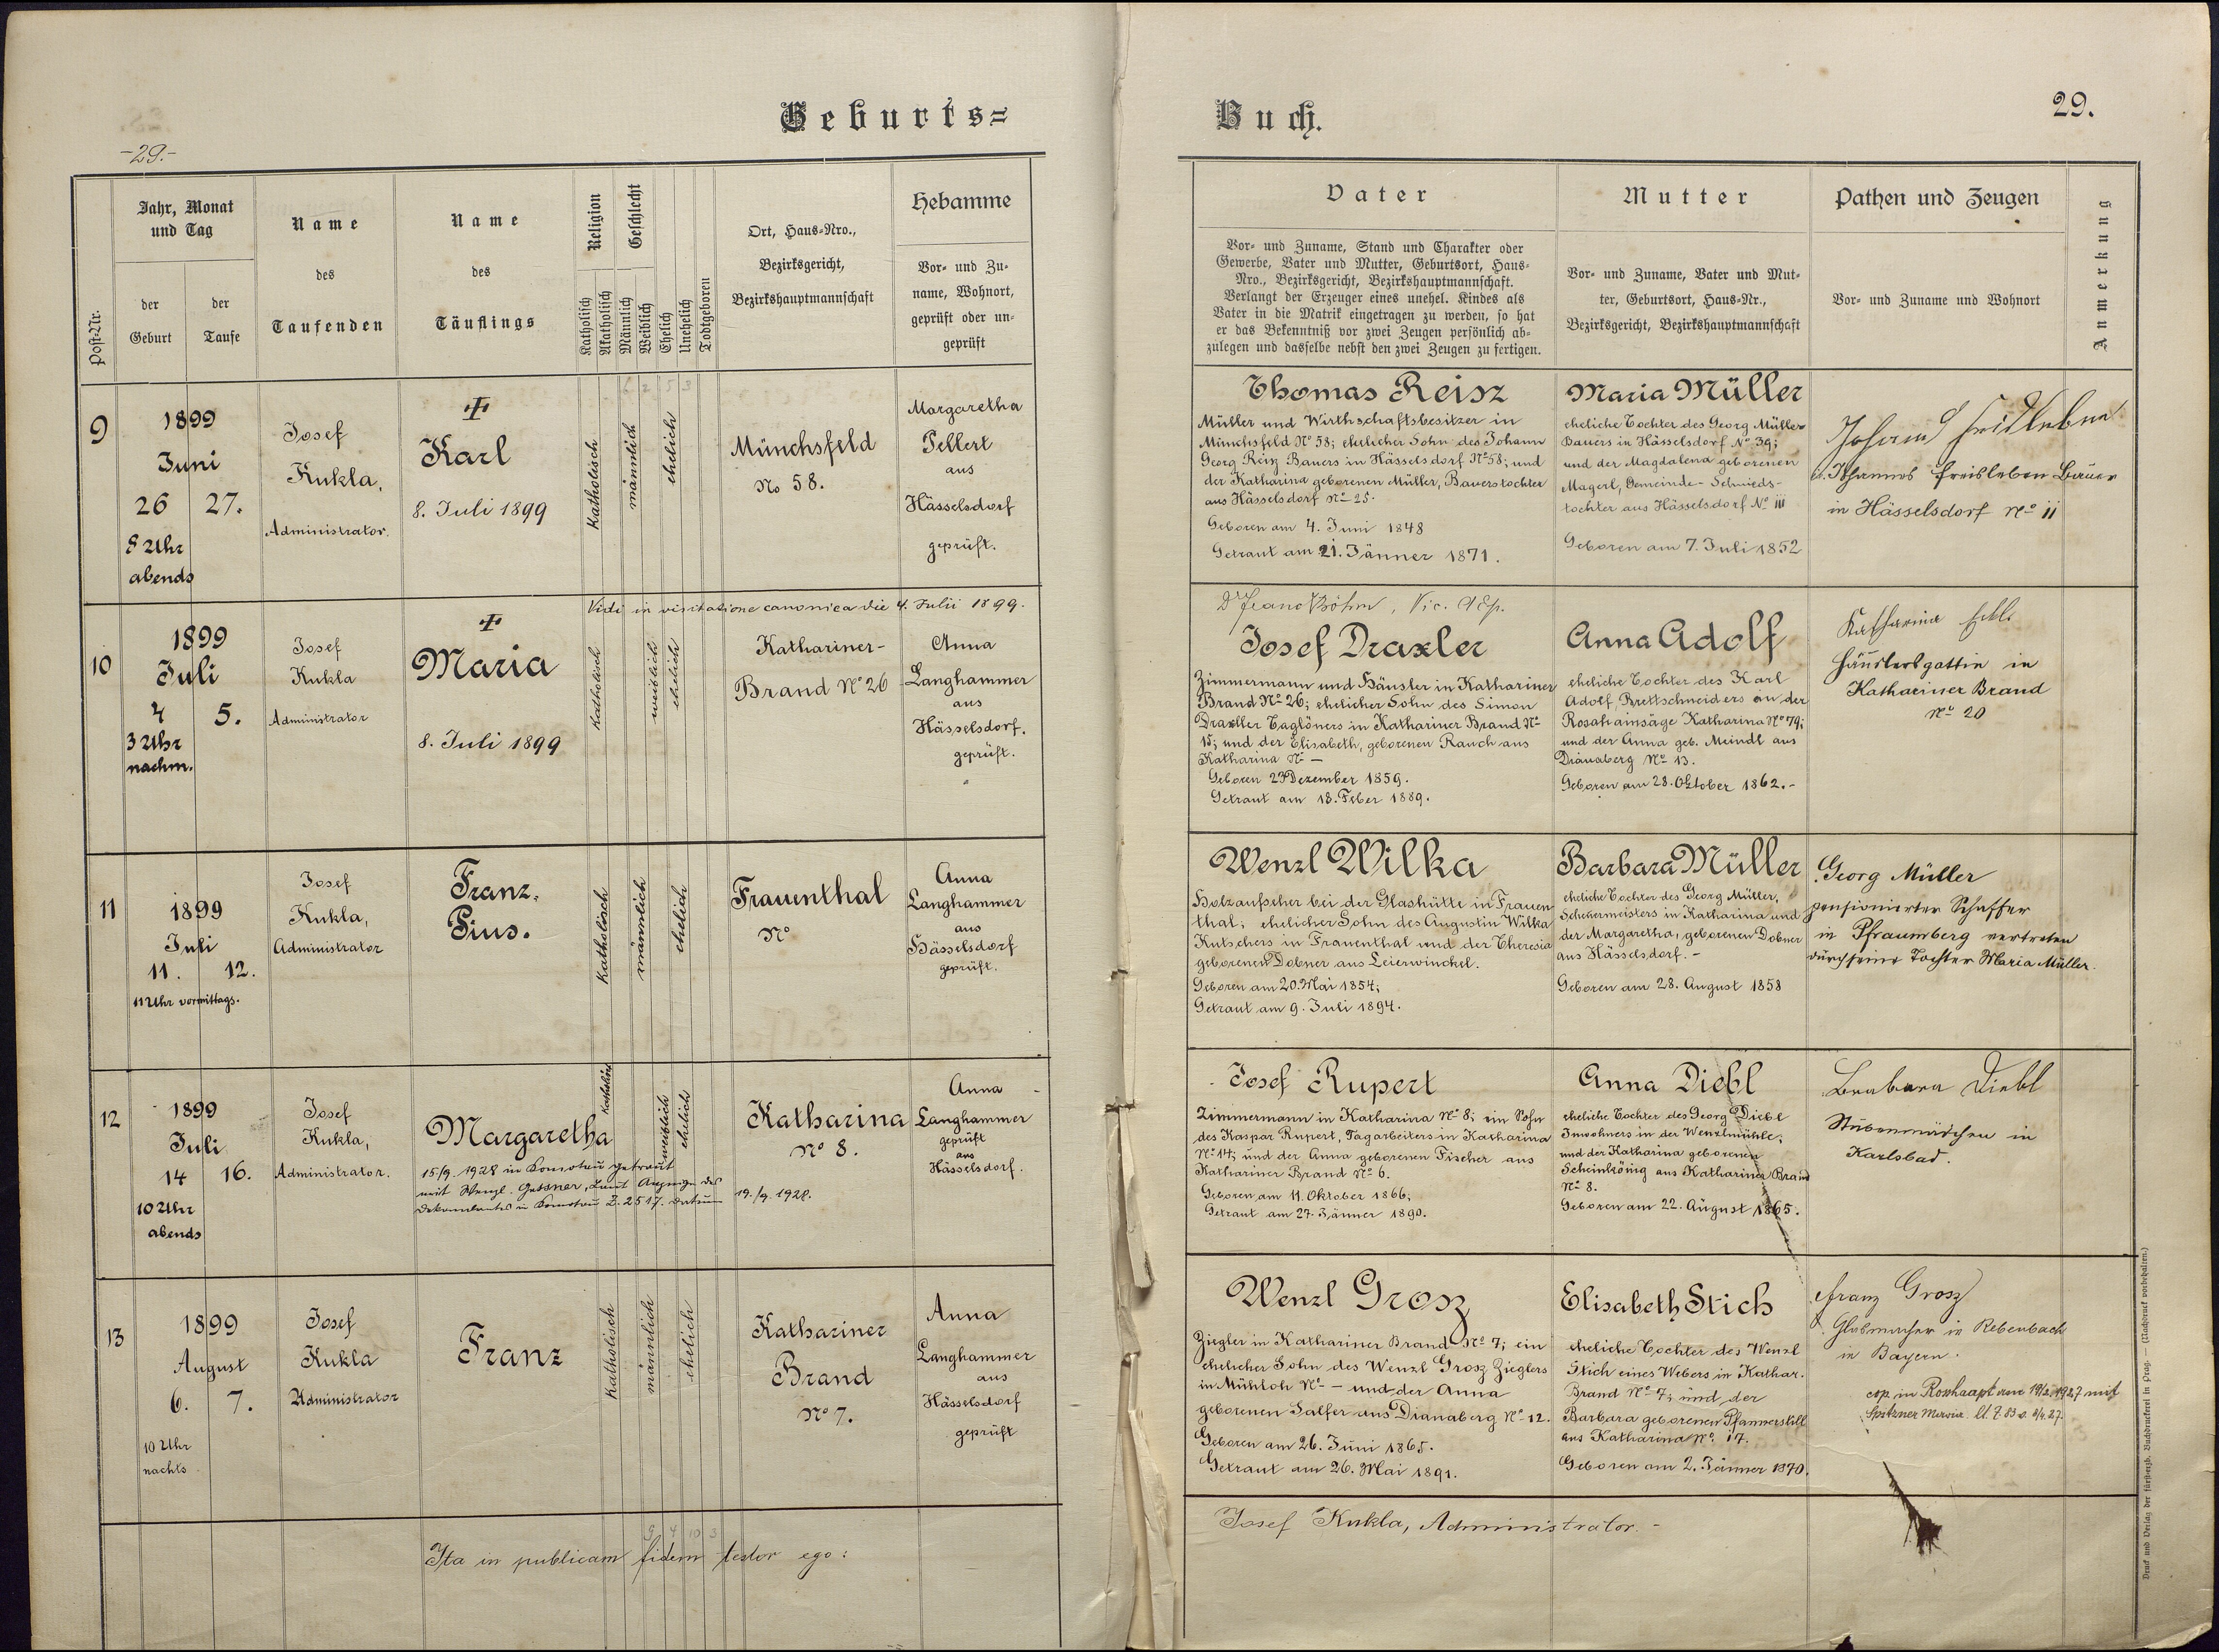 Geburts=
Buch.
-29.-
29.
Post-Nr.
Jahr, Monat
und Tag
der
Geburt
der
Taufe
Name
des
Taufenden
Name
des
Täuflings
Religion
Katholisch
Akatholisch
Geschlecht
Männlich
Weiblich
Ehelich
Unehelich
Todtgeboren
Ort, Haus-Nro.,
Bezirksgericht,
Bezirkshauptmannschaft
Hebamme
Vor- und Zu-
name, Wohnort,
geprüft oder un-
geprüft
Vater
Vor- und Zuname, Stand und Charakter oder
Gewerbe, Vater und Mutter, Geburtsort, Haus-
Nro., Bezirksgericht, Bezirkshauptmannschaft.
Verlangt der Erzeuger eines unehel. Kindes als
Vater in die Matrik eingetragen zu werden, so hat
er das Bekenntniß vor zwei Zeugen persönlich ab-
zulegen und dasselbe nebst den zwei Zeugen zu fertigen.
Mutter
Vor- und Zuname, Vater und Mut-
ter, Geburtsort, Haus-Nr.,
Bezirksgericht, Bezirkshauptmannschaft
Pathen und Zeugen
Vor- und Zuname und Wohnort
Anmerkung
9
1899
Juni
26 27.
8 Uhr
abends
Josef
Kukla,
Administrator.
Karl
8. Juli 1899
Katholisch
männlich
ehelich
Münchsfeld
No 58.
Margaretha
Pellert
aus
Hässelsdorf
geprüft.
Thomas Reisz
Müller und Wirthschaftsbesitzer in
Münchsfeld No 58; ehelicher Sohn des Johann
Georg Reisz Bauers in Hässelsdorf No 58; und
der Katharina geborenen Müller, Bauerstochter
aus Hässelsdorf No 25.
Geboren am 4. Juni 1848
Getraut am 21. Jänner 1871.
Maria Müller
eheliche Tochter des Georg Müller
Bauers in Hässelsdorf No 39;
und der Magdalena geborenen
Magerl, Gemeinde-Schmieds-
tochter aus Hässelsdorf No III
Geboren am 7. Juli 1852
Johann
Johannes Freisleben Bauer
in Hässelsdorf No 11
Vidi in visitatione canonica die 4. Julii 1899.
Dr Franc Böhm, Vic. AEp.
10
1899
Juli
4 5.
3 Uhr
nachm.
Josef
Kukla
Administrator
Maria
8. Juli 1899
Katholisch
weiblich
ehelich
Kathariner-
Brand No 26
Anna
Langhammer
aus
Hässelsdorf.
geprüft.
Josef Draxler
Zimmermann und Häusler in Kathariner
Brand No 26; ehelicher Sohn des Simon
Draxller Taglöners in Kathariner Brand No
15; und der Elisabeth, geborenen Rauch aus
Katharina No -
Geboren 27 Dezember 1859.
Getraut am 18. Feber 1889.
Anna Adolf
eheliche Tochter des Karl
Adolf, Brettschneiders an der
Rosahainsäge Katharina No 79;
und der Anna geb. Meindl aus
Dianaberg No 13.
Geboren am 28. Oktober 1862.-
Katharina
Häuslersgattin in
Kathariner Brand
No 20
11
1899
Juli
11. 12.
11 Uhr vormittags.
Josef
Kukla,
Administrator
Franz.
Pius.
Katholisch
männlich
ehelich
Frauenthal
No
Anna
Langhammer
aus
Hässelsdorf
geprüft.
Wenzl Wilka
Holzaufseher bei der Glashütte in Frauen
thal; ehelicher Sohn des Augustin Wilka
Kutschers in Frauenthal und der Theresia
geborenen Dobner aus Leierwinckel.
Geboren am 20. Mai 1854;
Getraut am 9. Juli 1894.
Barbara Müller
eheliche Tochter des Georg Müller,
in Katharina und
der Margaretha, geborenen Dobner
aus Hässelsdorf.-
Geboren am 28. August 1858
Georg Müller
pensionierter Schaffer
in Pfraumberg vertreten
durch seine Tochter Maria Müller.
12
1899
Juli
14 16.
10 Uhr
abends
Josef
Kukla,
Administrator.
Margaretha
15./9. 1928 in Komotau getraut
mit Wenzl Gessner, laut Anzeige des
Dekanalamtes in Komotau Z. 2517. Datum 19./9. 1928.
Katholisch
weiblich
ehelich
Katharina
No 8.
Anna
Langhammer
geprüft
aus
Hässelsdorf.
Josef Rupert
Zimmermann in Katharina No 8; ein Sohn
des Kaspar Rupert, Tagarbeiters in Katharina
No 14; und der Anna geborenen Fischer aus
Kathariner Brand No 6.
Geboren am 11. Oktober 1866;
Getraut am 27. Jänner 1890.
Anna Diebl
eheliche Tochter des Georg Diebl
Inwohners in der Wenzlmühle,
und der Katharina geborenen
Scheinkönig aus Kathariner Brand
No 8.
Geboren am 22. August 1865.
Barbara Diebl
Stubenmädchen in
Karlsbad.
13
1899
August
6. 7.
10 Uhr
nachts
Josef
Kukla
Administrator
Franz
Katholisch
männlich
ehelich
Kathariner
Brand
No 7.
Anna
Langhammer
aus
Hässelsdorf
geprüft
Wenzl Grosz
Ziegler in Kathariner Brand No 7; ein
ehelicher Sohn des Wenzl Grosz Zieglers
in Mühloh No - und der Anna
geborenen Salfer aus Dianaberg No 12.
Geboren am 26. Juni 1865.
Getraut am 26. Mai 1891.
Elisabeth Stich
eheliche Tochter des Wenzl
Stich eines Webers in Kathar.
Brand No 7; und der
Barbara geborenen Pfannerstill
aus Katharina No. 17.
Geboren am 2. Jänner 1870.
Franz Grosz
Glasmacher in Rebenbach
in Bayern.
cop. in Rosshaupt am 19/2. 1927 mit
Spitzner lt. Z. 83 v. 8/4. 27.
Ita in publicam fidem testor ego:
Josef Kukla, Administrator.-
Druck und Verlag der fürsterzb. Buchdruckerei in Prag. — (Nachdruck vorbehalten.)